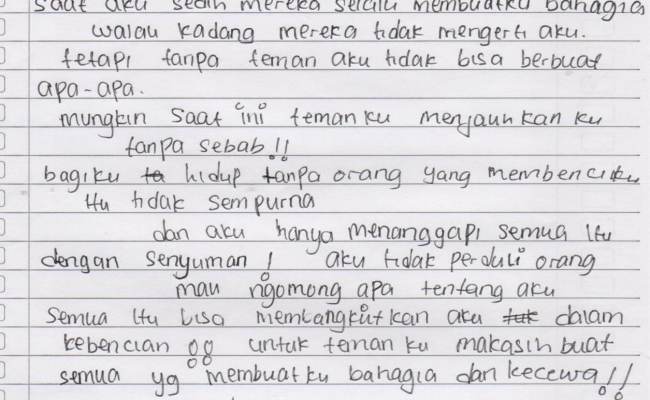 saat aku sedih mereka selalu membuatku bahagia
walau kadang mereka tidak mengerti aku.
tetapi tanpa teman aku tidak bisa berbuat
apa-apa.
mungkin saat ini teman ku menjauhkan ku
tanpa sebab!!
bagiku ta hidup tanpa orang yang membenciku
itu tidak sempurna
dan aku hanya menanggapi semua itu
dengan senyuman! aku tidak perduli orang
mau ngomong apa tentang aku
semua itu bisa membangkitkan aku tuk dalam
kebencian !! untuk teman ku makasih buat
semua yg membuatku bahagia dan kecewa!!